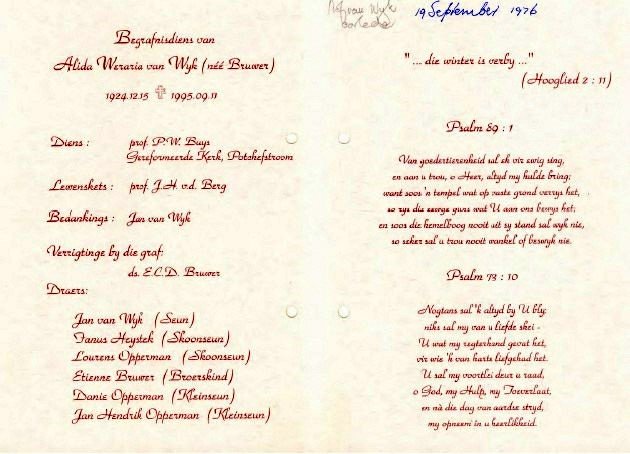 Begrafnisdiens van
Alida Weraria van Wyk (néé Bruwer)
1924.12.15 1995.09.11
Diens : prof. P.W. Buys
Gereformeerde Kerk, Potchefstroom
Lewensskets : prof. J.H. v.d. Berg
Bedankings : Jan van Wyk
Verrigtinge by die graf:
ds. E.C.D. Bruwer
Draers:
Jan van Wyk (Seun)
Fanus Heystek (Skoonseun)
Lourens Opperman (Skoonseun)
Etienne Bruwer (Broerskind)
Danie Opperman (Kleinseun)
Jan Hendrik Opperman (Kleinseun)
van Wyk
oorlede
19 September 1976
" ... die winter is verby ..."
(Hooglied 2 : 11)
Psalm 89 : 1
Van goedertierenheid sal ek vir ewig sing,
en aan u trou, o Heer, altyd my hulde bring;
want soos 'n tempel wat op vaste grond verrys het,
so rys die eewge guns wat U aan ons bewys het;
en soos die hemelboog nooit uit sy stand sal wyk nie,
so seker sal u trou nooit wankel of beswyk nie.
Psalm 73 : 10
Nogtans sal 'k altyd by U bly;
niks sal my van u liefde skei -
U wat my regterhand gevat het,
vir wie 'k van harte liefgehad het.
U sal my voortlei deur u raad,
o God, my Hulp, my Toeverlaat,
en ná die dag van aardse stryd,
my opneem in u heerlikheid.